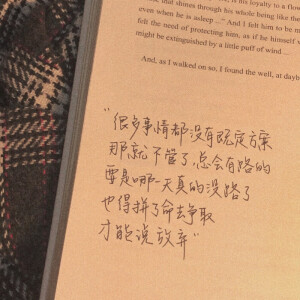 is his loyalty to a flow
that shines through his whole being like the
even when he is asleep ..." And I felt him to be m
felt the need of protecting him, as if he himself w
might be extinguished by a little puff of wind ...
And, as I walked on so, I found the well, at dayb
“很多事情都没有既定方案
那就不管了,总会有路的
要是哪一天真的没路了
也得拼了命去争取
才能说放弃”